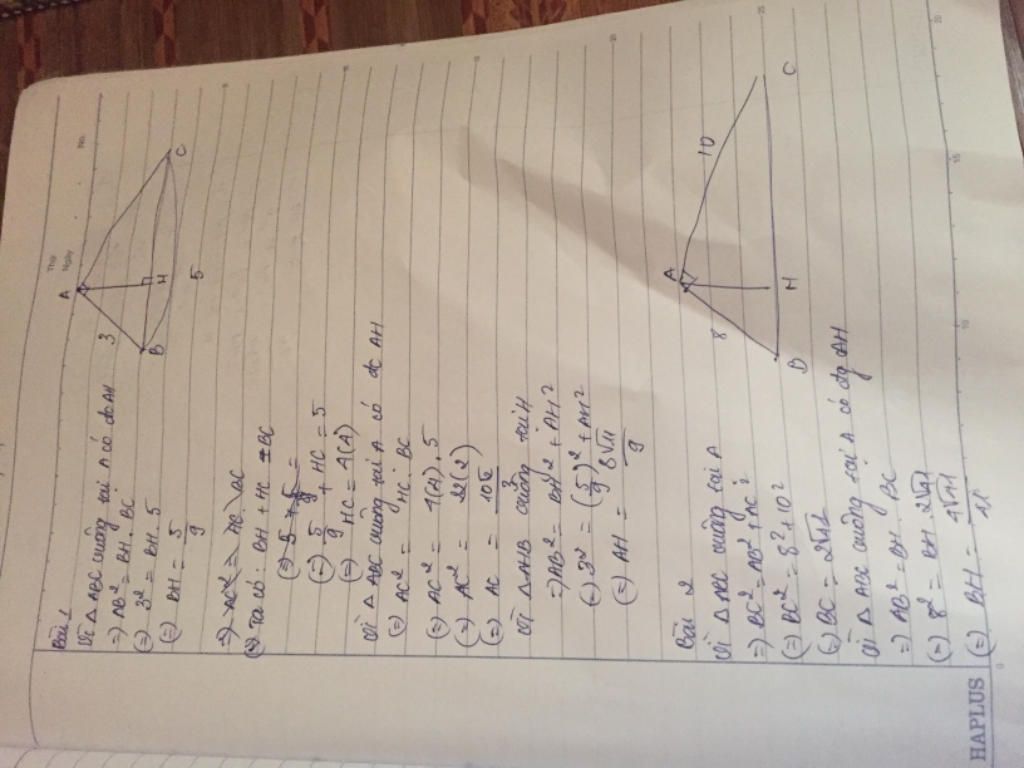 Thứ
Ngày
No.
Bài 1
A
3
B
H
C
5
Vì Δ ABC vuông tại A có đc AH
=> AB² = BH . BC
(=) 3² = BH . 5
(=) BH = 5/9
=> AC² = HC . BC
(=) Ta có : BH + HC = BC
(=) 5 + 5/9 =
(=) 5/9 + HC = 5
(=) HC = 4(A)
Vì Δ ABC vuông tại A có đc AH
(=) AC² = HC . BC
(=) AC² = 4(A) . 5
(=) AC² = 22(2)
(=) AC = 10√2/3
Vì Δ AHB vuông tại H
=> AB² = BH² + AH²
(=) 3² = (5/9)² + AH²
(=) AH = 8√11/9
Bài 2
A
8
10
B
H
C
Vì Δ ABC vuông tại A
=> BC² = AB² + AC²
(=) BC² = 8² + 10²
(=) BC = 2√41
Vì Δ ABC vuông tại A có đg AH
=> AB² = BH . BC
(=) 8² = BH . 2√41
(=) BH = 4√41/41
HAPLUS
0
5
10
15
20
25